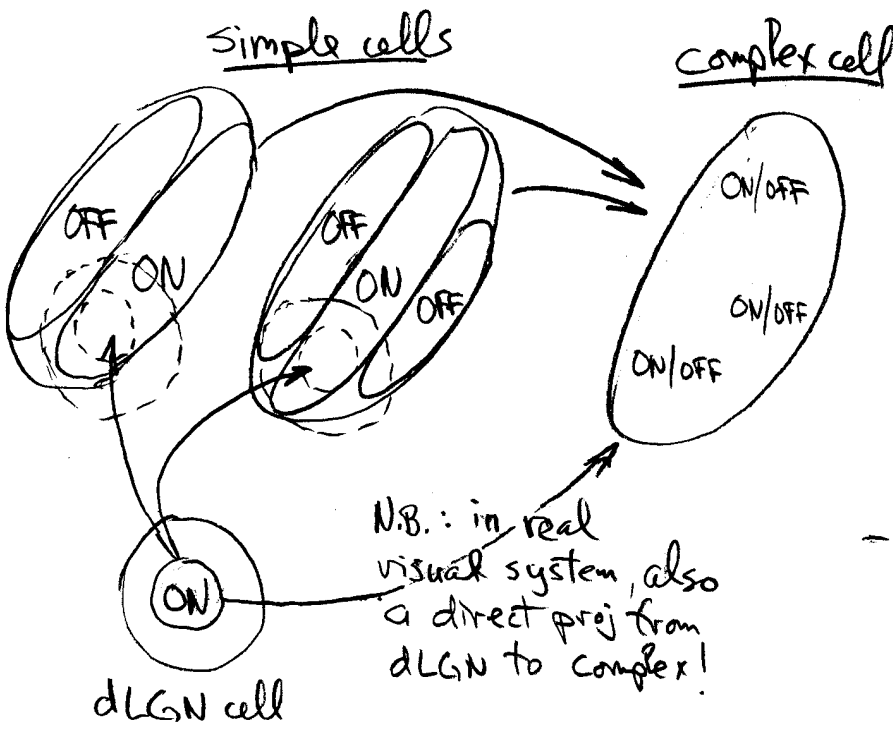 Simple cells
Complex cell
OFF
ON
OFF
ON
OFF
ON/OFF
ON/OFF
ON/OFF
ON
dLGN cell
N.B.: in real
visual system, also
a direct proj from
dLGN to complex!